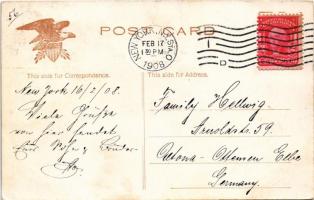 56
POST CARD
NEW YORK, N.Y. STA. O
FEB 17
1 30 PM
1908
1
D
This side for Correspondence.
This side for Address.
New York 16/2/08.
Viele Grüße
von hier sendet
Euer Sohn & Bruder
Family Hellwig.
Arnoldstr. 59.
Altona - Ottensen Elbe
Germany.